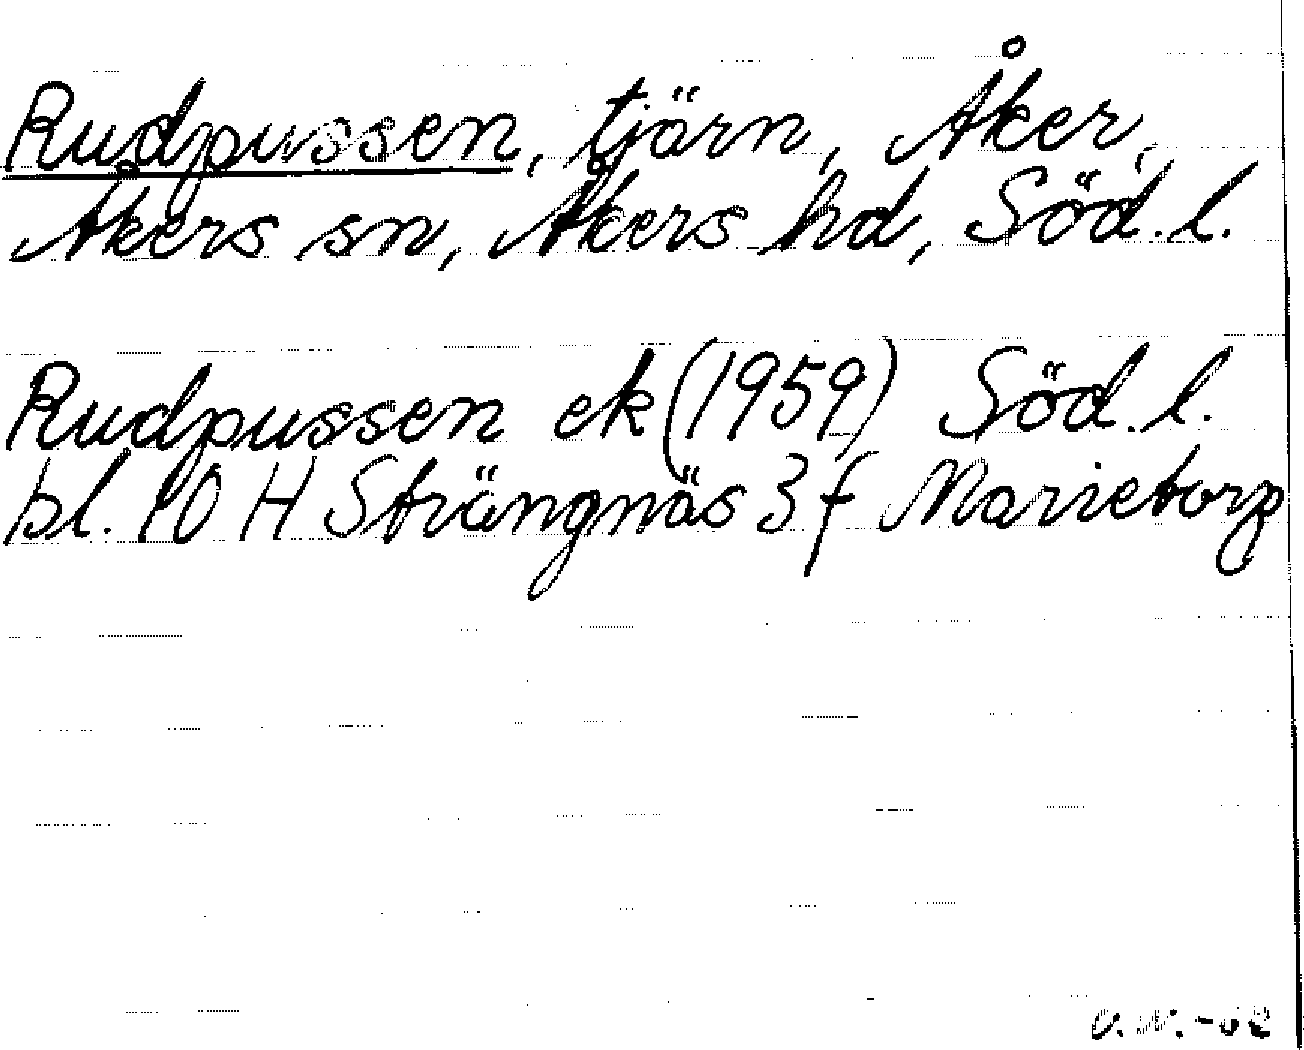 Rudpussen, tjärn, Åker,
Åkers sn, Åkers hd, Söd. l.
Rudpussen ek (1959) Söd. l.
bl. 10 H Strängnäs 3 f Marieborg